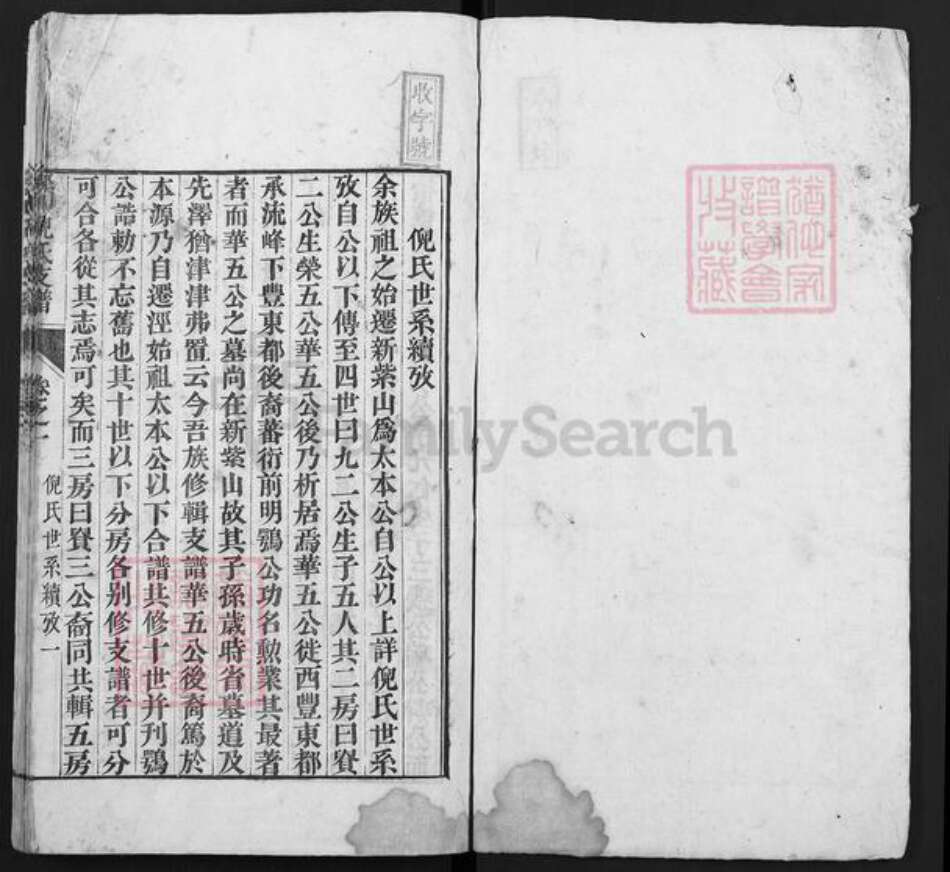 收字號
倪氏世系續攷
余族祖之始遷新紫山爲太本公自公以上詳倪氏世系
攷自公以下傳至四世曰九二公生子五人其二房曰賢
二公生榮五公華五公後乃析居焉華五公徙西豐東都
承流峰下豐東都後裔蕃衍前明鶚公功名勲業其最著
者而華五公之墓尚在新紫山故其子孫歲時省墓道及
先澤猶津津弗置云今吾族修輯支譜華五公後裔篤於
本源乃自遷涇始祖太本公以下合譜共修十世并刊鶚
公誥勅不忘舊也其十世以下分房各别修支譜者可分
可合各從其志焉可矣而三房曰賢三公裔同共輯五房
倪氏支譜
卷之一
倪氏世系續攷 一
譜學會
收藏
FamilySearch